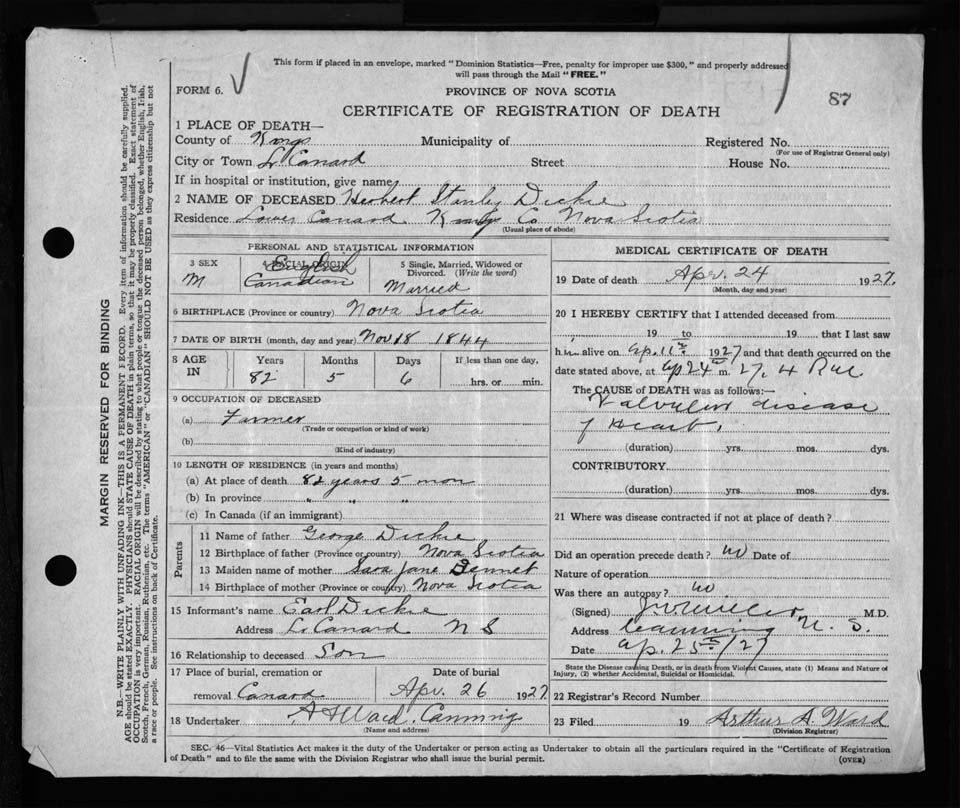 This form if placed in an envelope, marked "Dominion Statistics—Free, penalty for improper use $300," and properly addressed
will pass through the Mail "FREE."
FORM 6.
PROVINCE OF NOVA SCOTIA
87
CERTIFICATE OF REGISTRATION OF DEATH
1 PLACE OF DEATH—
County of Kings Municipality of Registered No.
(For use of Registrar General only)
City or Town L Canard Street House No.
If in hospital or institution, give name
2 NAME OF DECEASED Herbert Stanley Dickie
Residence Lower Canard Kings Co Nova Scotia
(Usual place of abode)
PERSONAL AND STATISTICAL INFORMATION
3 SEX
M
4 RACIAL ORIGIN
English
Canadian
5 Single, Married, Widowed or
Divorced. (Write the word)
Married
6 BIRTHPLACE (Province or country) Nova Scotia
7 DATE OF BIRTH (month, day and year) Nov 18 1844
8 AGE IN Years Months Days If less than one day,
82 5 6 hrs. or min.
9 OCCUPATION OF DECEASED
(a) Farmer
(Trade or occupation or kind of work)
(b)
(Kind of industry)
10 LENGTH OF RESIDENCE (in years and months)
(a) At place of death 82 years 5 mon
(b) In province " " "
(c) In Canada (if an immigrant)
Parents
11 Name of father George Dickie
12 Birthplace of father (Province or country) Nova Scotia
13 Maiden name of mother Sara Jane Bennet
14 Birthplace of mother (Province or country) Nova Scotia
15 Informant's name Earl Dickie
Address L. Canard N S
16 Relationship to deceased Son
17 Place of burial, cremation or Date of burial
removal Canard Apr. 26 1927
18 Undertaker A A Ward. Canning
(Name and address)
MEDICAL CERTIFICATE OF DEATH
19 Date of death Apr. 24 1927.
(Month, day and year)
20 I HEREBY CERTIFY that I attended deceased from
19 to 19 that I last saw
him alive on Ap. 11th 1927 and that death occurred on the
date stated above, at Ap 24 m. 27, 4
The CAUSE OF DEATH was as follows:—
Valvular disease
of Heart.
(duration) yrs. mos. dys.
CONTRIBUTORY
(duration) yrs. mos. dys.
21 Where was disease contracted if not at place of death?
Did an operation precede death? no Date of
Nature of operation
Was there an autopsy? no
(Signed) M.D.
Address Canning N. S.
Date Ap. 25th/27
State the Disease causing Death, or in death from Violent Causes, state (1) Means and Nature of
Injury, (2) whether Accidental, Suicidal or Homicidal.
22 Registrar's Record Number
23 Filed 19 Arthur A. Ward
(Division Registrar)
SEC. 46—Vital Statistics Act makes it the duty of the Undertaker or person acting as Undertaker to obtain all the particulars required in the "Certificate of Registration
of Death" and to file the same with the Division Registrar who shall issue the burial permit.
(OVER)
MARGIN RESERVED FOR BINDING
N.B.—WRITE PLAINLY WITH UNFADING INK—THIS IS A PERMANENT RECORD. Every item of information should be carefully supplied.
AGE should be stated EXACTLY. PHYSICIANS should STATE CAUSE OF DEATH in plain terms, so that it may be properly classified. Exact statement of
OCCUPATION is very important. RACIAL ORIGIN will be described by stating to what people or tongue the deceased person belonged, whether English, Irish,
Scotch, French, German, Russian, Ruthenian, etc. The terms "AMERICAN" or "CANADIAN" SHOULD NOT BE USED as they express citizenship but not
a race or people. See instructions on back of Certificate.